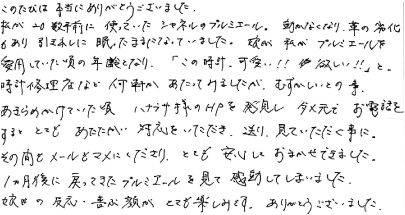 このたびは 本当にありがとうございました.
私が 20数年前に 使っていた シャネルのプルミエール. 動かなくなり, 革の劣化
もあり 引き出しに 眠ったままになっていました. 娘が 私が プルミエールを
愛用していた頃の 年齢となり、「この時計. 可愛い!! 欲しい!!」と.
時計修理店など 何軒か あたってみましたが、むずかしいとの事.
あきらめかけていた頃 ハナブサ様のHPを 発見し ダメ元で お電話を
すると とても あたたかい 対応をいただき. 送り, 見ていただく事に.
その間も メールを マメにくださり、とても 安心して おまかせできました.
1ヵ月後に 戻ってきた プルミエールを 見て 感動してしまいました.
娘の 反応・喜ぶ顔が とても楽しみです. ありがとうございました.